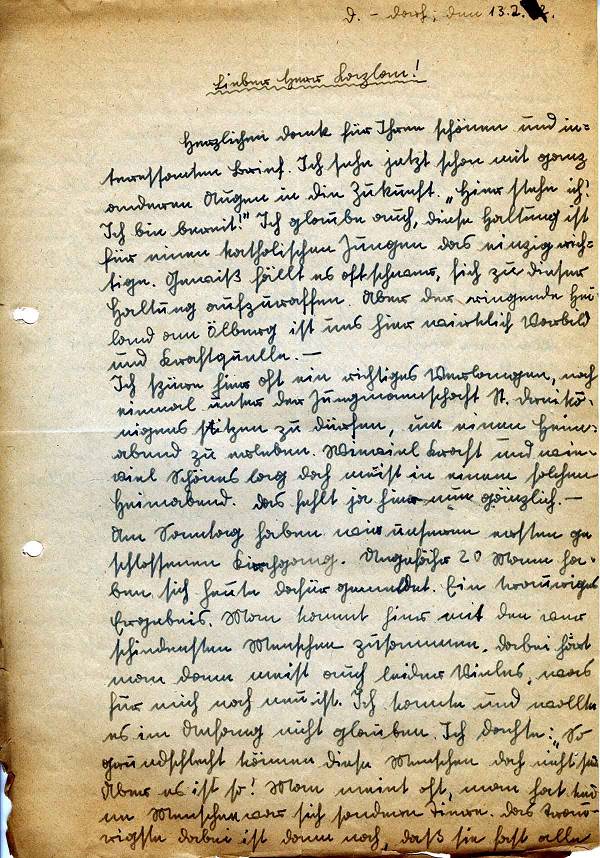 D. – dorf, den 13.2.
Lieber Herr Kaplan!
Herzlichen Dank für Ihren schönen und in=
teressanten Brief. Ich sehe jetzt schon mit ganz
anderen Augen in die Zukunft. „Hier stehe ich!
Ich bin bereit!" Ich glaube auch, diese Haltung ist
für einen katholischen Jungen das einzig rich=
tige. Gewiß fällt es oft schwer, sich zu dieser
Haltung aufzuraffen. Aber der ringende Hei=
land am Ölberg ist uns hier wirklich Vorbild
und Kraftquelle. —
Ich spüre hier oft ein richtiges Verlangen, noch
einmal unter der Jungmannschaft St. Dreikö=
nigens sitzen zu dürfen, um einen Heim=
abend zu erleben. Wieviel Kraft und wie=
viel Schönes lag doch meist in einem solchen
Heimabend. Das fehlt ja hier nun gänzlich. —
Am Sonntag haben wir unseren ersten ge
schlossenen Kirchgang. Ungefähr 20 Mann ha=
ben sich heute dafür gemeldet. Ein trauriges
Ergebnis. Man kommt hier mit den ver
schiedensten Menschen zusammen. Dabei hört
man dann meist auch leider Vieles, was
für mich noch neu ist. Ich konnte und wollte
es im Anfang nicht glauben. Ich dachte: „So
grundschlecht können diese Menschen doch nicht sein
Aber es ist so! Man meint oft, man hat kei
ne Menschen vor sich sondern Tiere. Das trau=
rigste dabei ist dann noch, daß sie fast alle